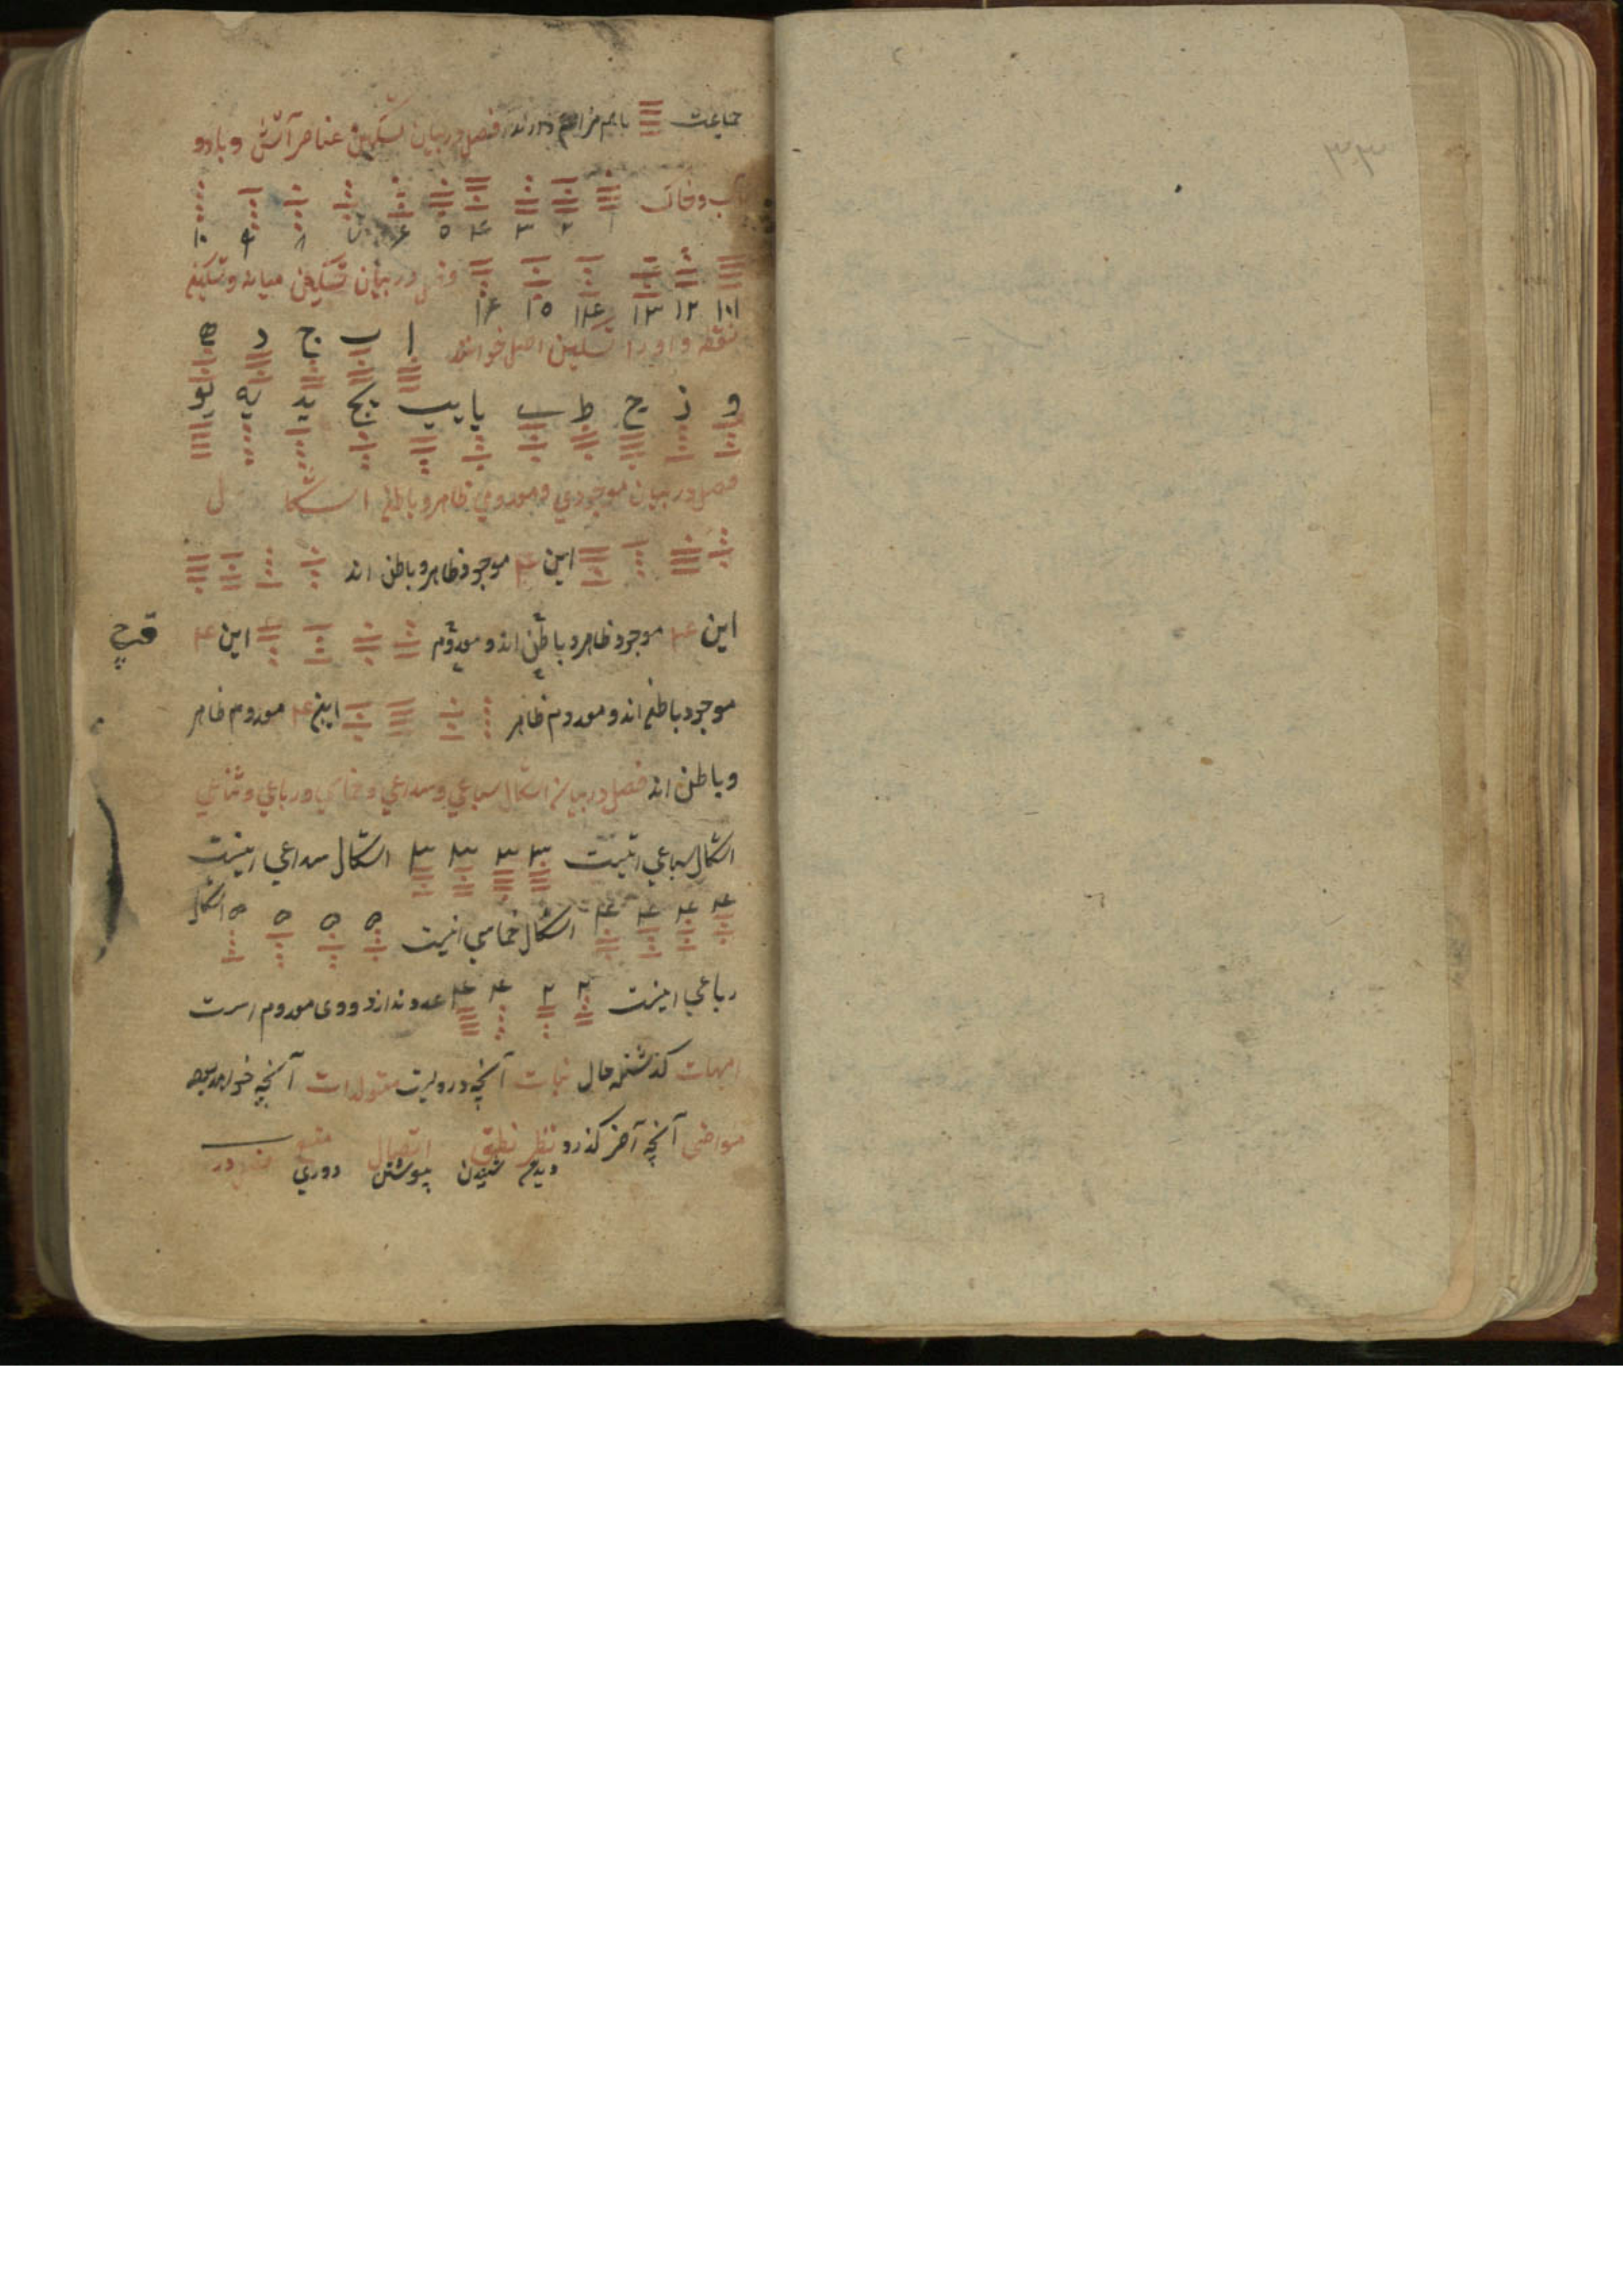 ۳۳
جماعت باهم مزاج دارند فصل در بیان تسکین عناصر آتش و باد و
آب و خاک
۱ ۲ ۳ ۴ ۵ ۶ ۷ ۸ ۹ ۱۰
۱۱ ۱۲ ۱۳ ۱۴ ۱۵ ۱۶ در بیان تسکین میانه و تسکین
نقطه و او را تسکین اصل خوانند ا ب ج د ه
و ز ح ط ے یا یب یج ید یه یو
فصل در بیان موجودی و معدومی ظاهر و باطن اشکال
این ۴ موجود ظاهر و باطن اند
این ۴ موجود ظاهر و باطن اند و معدوم این ۴
موجود باطن اند و معدوم ظاهر این ۴ معدوم ظاهر
و باطن اند فصل در بیان اشکال سباعی و سداعی و خماسی و رباعی و ثنایی
اشکال سباعی اینست ۳ ۳ ۳ ۳ اشکال سداعی اینست
۴ ۴ ۴ ۴ اشکال خماسی اینست ۵ ۵ ۵ ۵ اشکال
رباعی اینست ۲ ۲ ۴ ۴ عدد ندارد و وی معدوم است
امهات گذشته حال نبات آنچه درویست متولدات آنچه خواهد
آنچه آخر گذرد نظر نطق اتصال
شنیدن پیوستن دوری